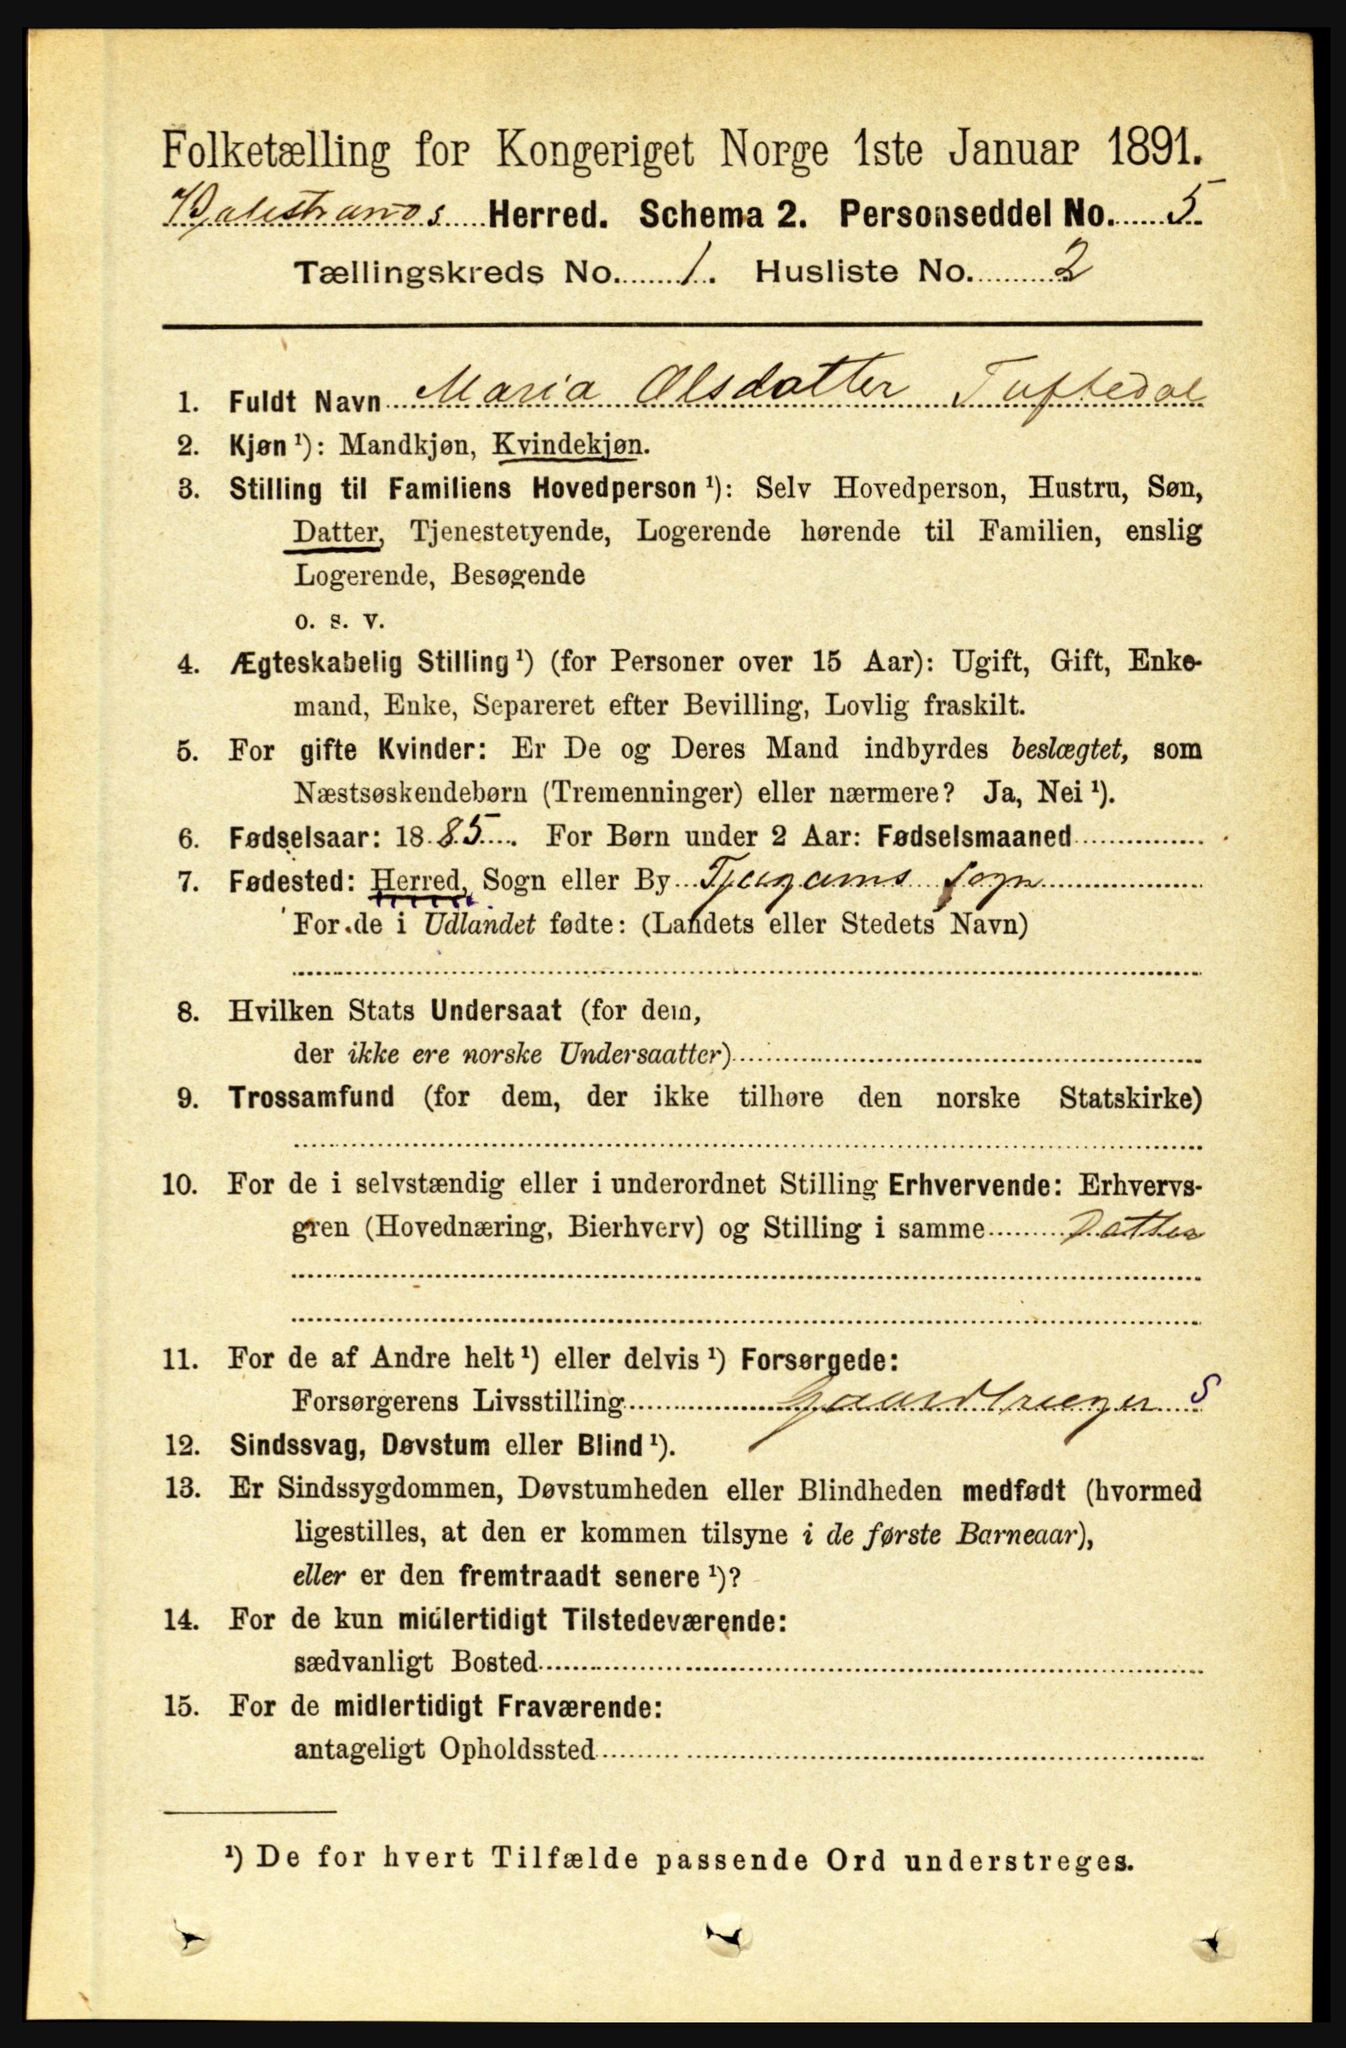 Folketælling for Kongeriget Norge 1ste Januar 1891.
Balestrands Herred. Schema 2. Personseddel No. 5
Tællingskreds No. 1. Husliste No. 2
1. Fuldt Navn Maria Olsdatter Tuftedal
2. Kjøn ¹): Mandkjøn, Kvindekjøn.
3. Stilling til Familiens Hovedperson ¹): Selv Hovedperson, Hustru, Søn,
Datter, Tjenestetyende, Logerende hørende til Familien, enslig
Logerende, Besøgende
o. s. v.
4. Ægteskabelig Stilling ¹) (for Personer over 15 Aar): Ugift, Gift, Enke-
mand, Enke, Separeret efter Bevilling, Lovlig fraskilt.
5. For gifte Kvinder: Er De og Deres Mand indbyrdes beslægtet, som
Næstsøskendebørn (Tremenninger) eller nærmere? Ja, Nei ¹).
6. Fødselsaar: 1885. For Børn under 2 Aar: Fødselsmaaned
7. Fødested: Herred, Sogn eller By Tjugums Sogn
For de i Udlandet fødte: (Landets eller Stedets Navn)
8. Hvilken Stats Undersaat (for dem,
der ikke ere norske Undersaatter)
9. Trossamfund (for dem, der ikke tilhøre den norske Statskirke)
10. For de i selvstændig eller i underordnet Stilling Erhvervende: Erhvervs-
gren (Hovednæring, Bierhverv) og Stilling i samme Datter
11. For de af Andre helt ¹) eller delvis ¹) Forsørgede:
Forsørgerens Livsstilling Gaardbruger S
12. Sindssvag, Døvstum eller Blind ¹).
13. Er Sindssygdommen, Døvstumheden eller Blindheden medfødt (hvormed
ligestilles, at den er kommen tilsyne i de første Barneaar),
eller er den fremtraadt senere ¹)?
14. For de kun midlertidigt Tilstedeværende:
sædvanligt Bosted
15. For de midlertidigt Fraværende:
antageligt Opholdssted
¹) De for hvert Tilfælde passende Ord understreges.